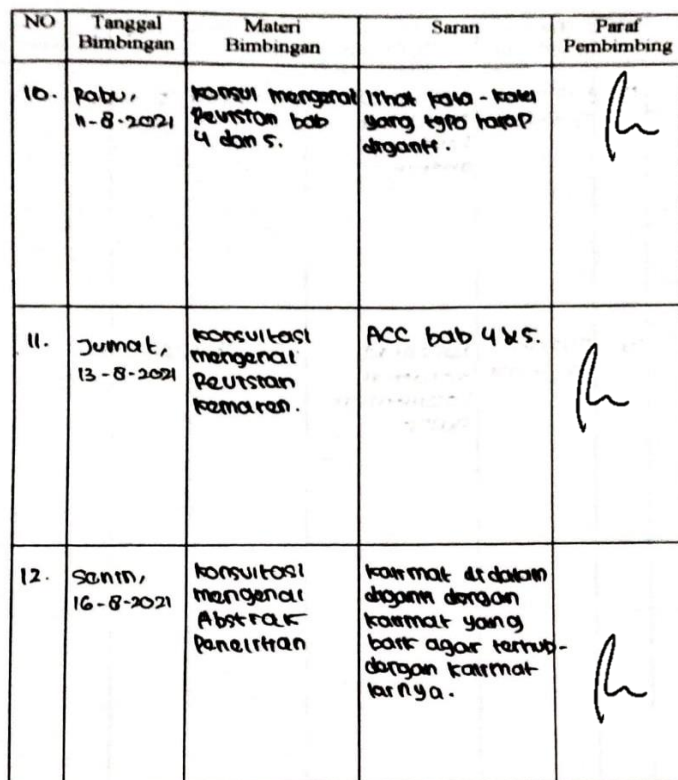 NO
Tanggal
Bimbingan
Materi
Bimbingan
Saran
Paraf
Pembimbing
10.
Rabu,
11-8-2021
konsul mengenai
Revision bab
4 dan 5.
lihat kata-kata
yang typo harap
diganti.
11.
Jumat,
13-8-2021
konsultasi
mengenai
Revisian
kemaren.
ACC bab 4 & 5.
12.
Senin,
16-8-2021
konsultasi
mengenai
Abstrak
Penelitian
kalimat di dalam
diganti dengan
kalimat yang
baik agar terhub-
dengan kalimat
lainya.